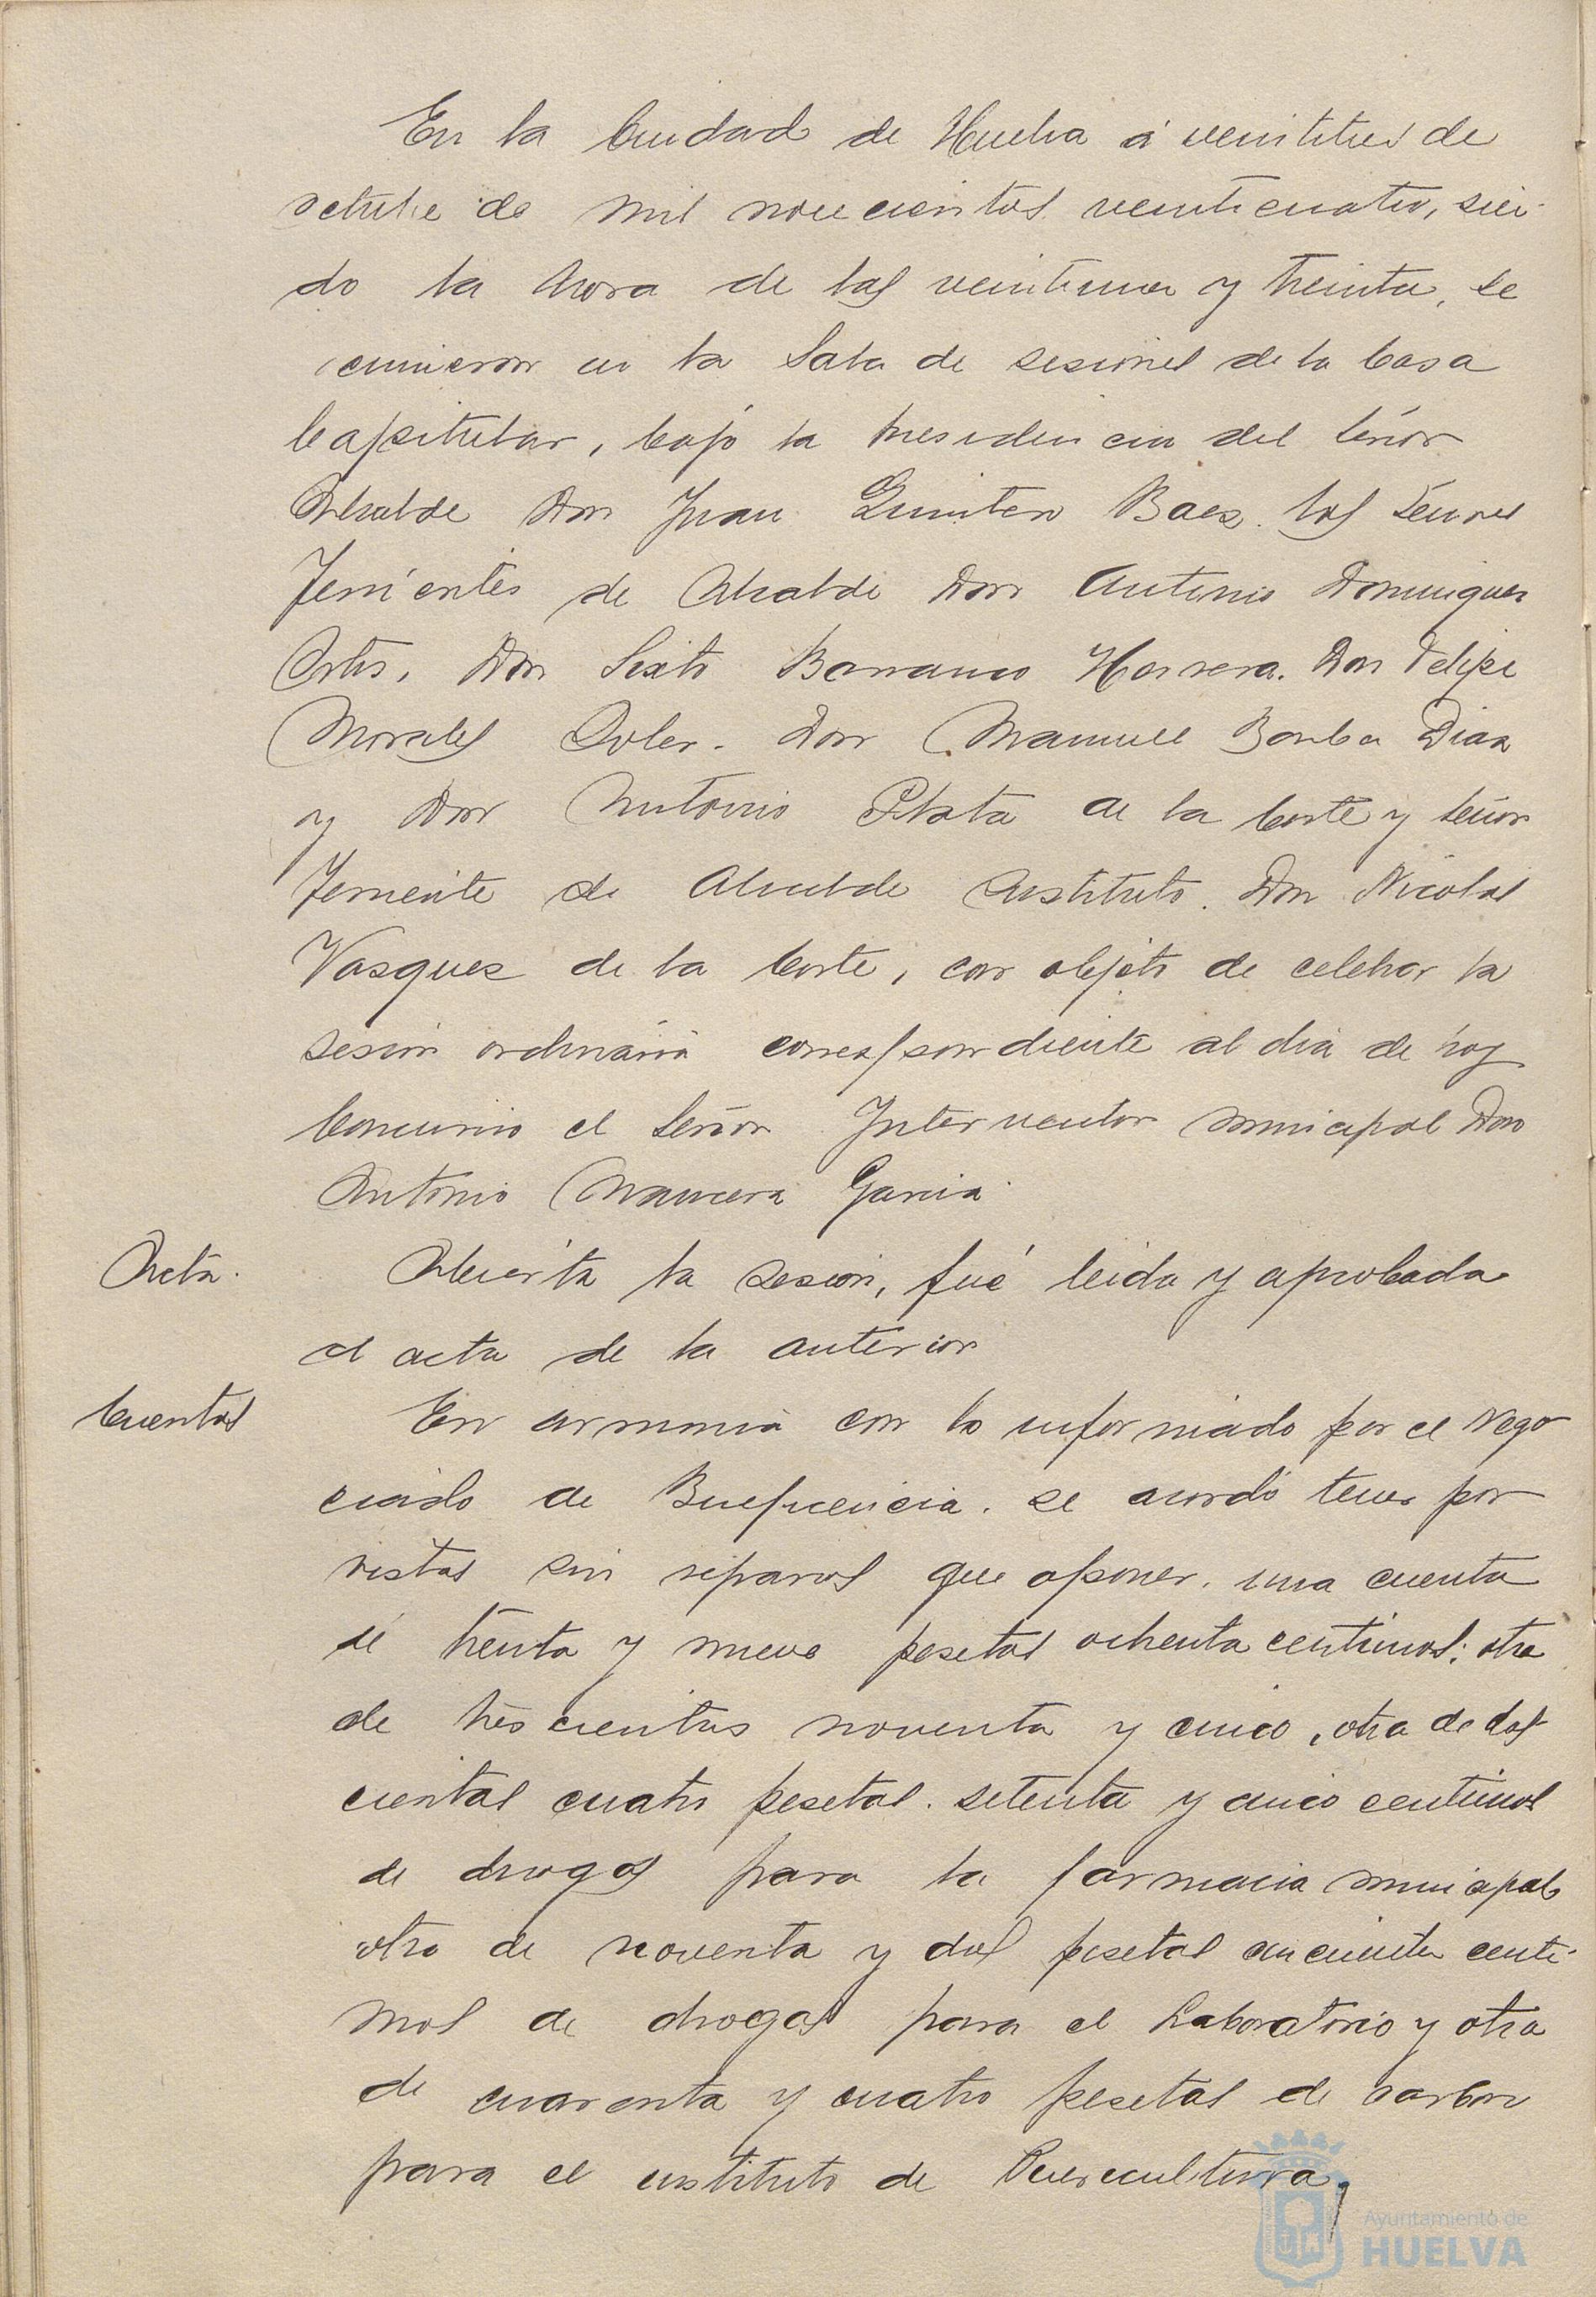 En la Ciudad de Huelva á veintitres de
octubre de mil novecientos veinticuatro, sien-
do la hora de las veintiuna y treinta, se
reunieron en la Sala de sesiones de la Casa
Capitular, bajo la presidencia del Señor
Alcalde Don Juan Quintero Baez. los Señores
Tenientes de Alcalde Don Antonio Dominguez
Ortiz, Don Sixto Barranco Herrera. Don Felipe
Morales Soler. Don Manuel Borba Diaz
y Don Antonio Plata de la Corte y Señor
Teniente de Alcalde Sustituto. Don Nicolas
Vasquez de la Corte, con objeto de celebrar la
sesion ordinaria correspondiente al dia de hoy
Concurrio el Señor Interventor municipal Don
Antonio Mancera Garcia.
Acta. Abierta la sesion, fué leida y aprobada
el acta de la anterior
Cuentas En armonia con lo informado por el Nego
ciado de Beneficencia. se acordó tener por
vistas sin reparos que oponer. una cuenta
de treinta y nueve pesetas ochenta centimos; otra
de trescientas noventa y cinco, otra de dos
cientas cuatro pesetas. setenta y cinco centimos
de drogas para la farmacia municipal
otra de noventa y dos pesetas cincuenta centi-
mos de drogas para el Laboratorio y otra
de cuarenta y cuatro pesetas de carbon
para el instituto de Puericultura,
Ayuntamiento de
HUELVA